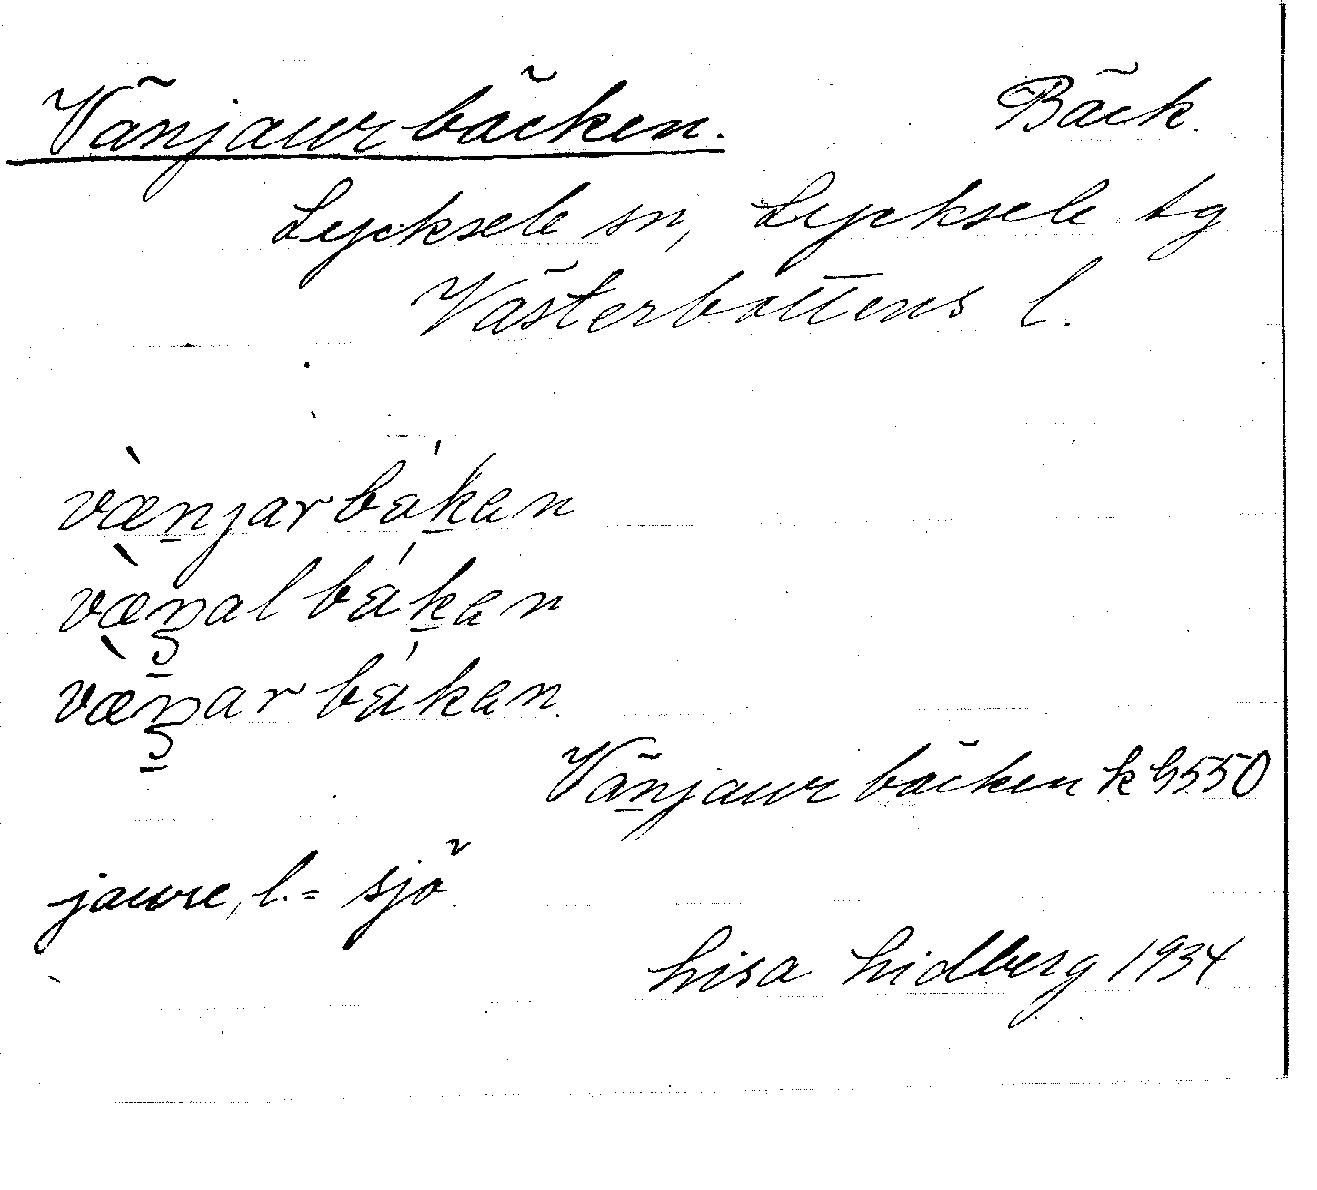 Vänjaurbäcken. Bäck.
Lycksele sn, Lycksele tg
Västerbottens l.
væ̀njarbákan
væ̀nalbákan
væ̀narbákan.
Vänjaurbäcken k G550
jaure, l. = sjö.
Lisa Lidberg 1934